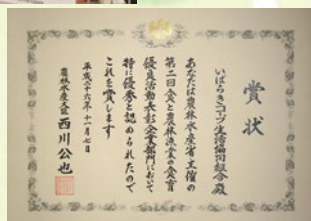 賞状
いばらきコープ生活協同組合殿
あなたは農林水産省主催の
第二回食と農林漁業の食育
優良活動表彰企業部門において
特に優秀と認められたので
これを賞します
平成二十六年十一月七日
農林水産大臣 西川公也